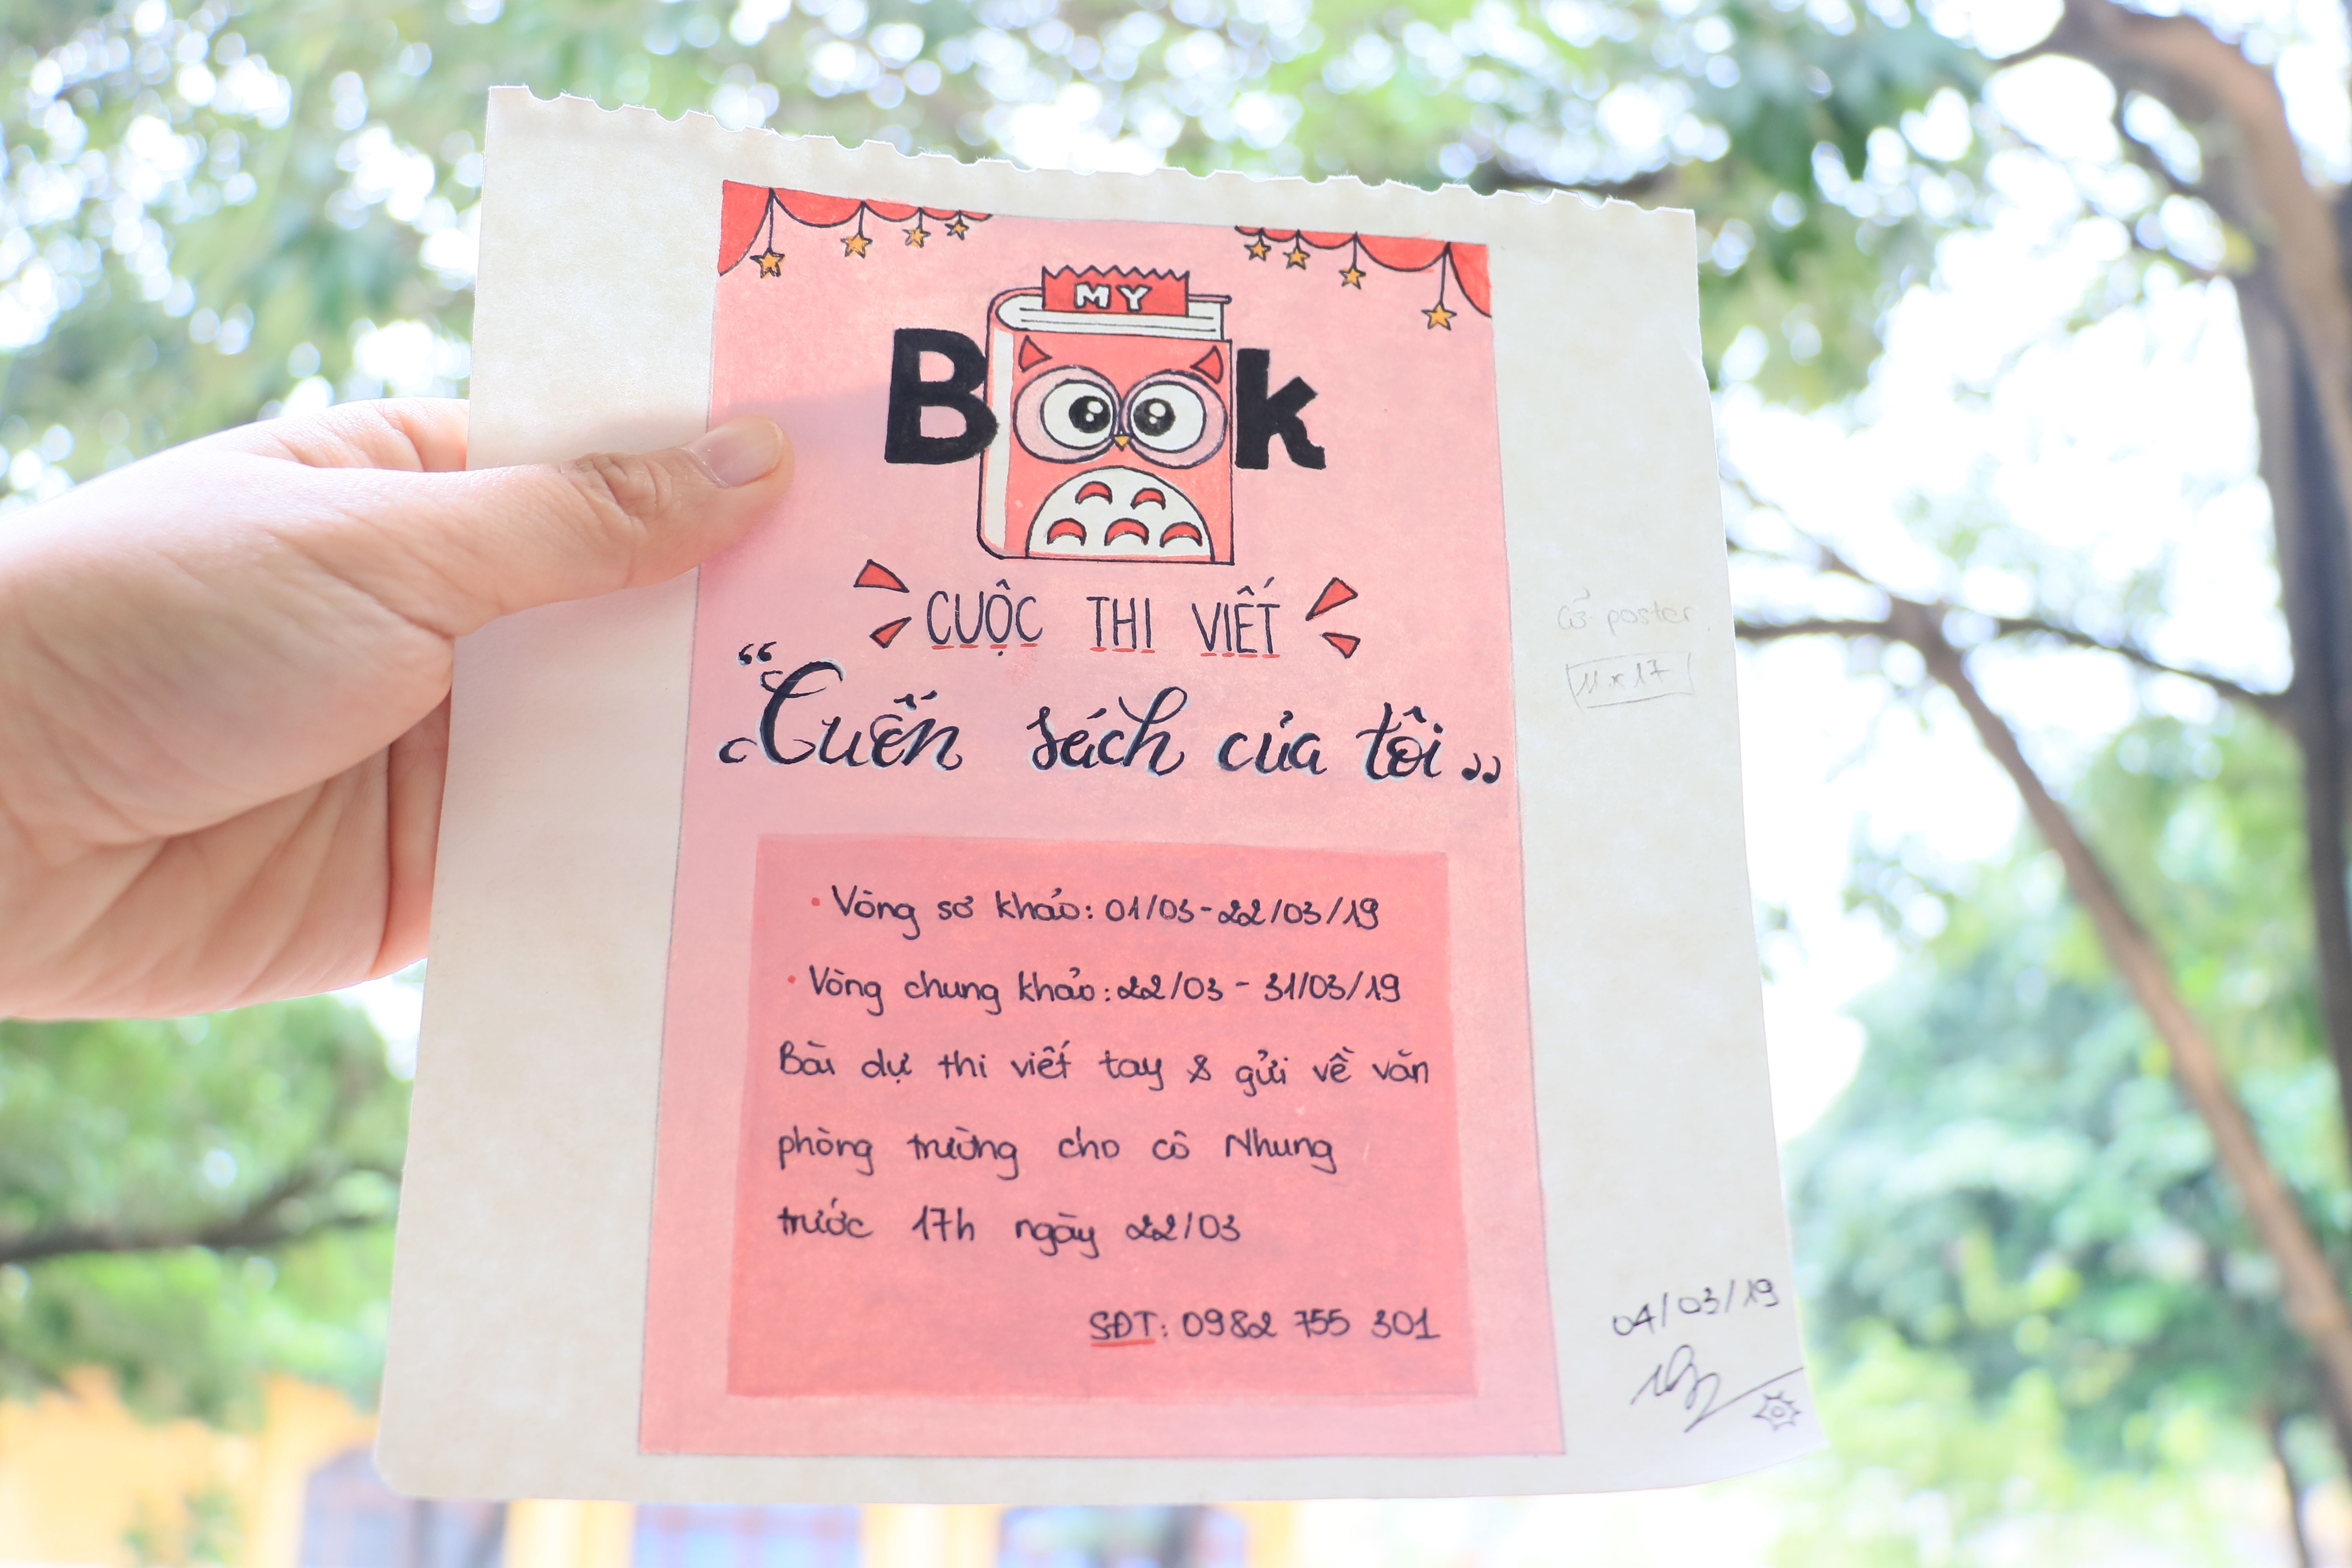 MY
B k
CUỘC THI VIẾT
“Cuốn sách của tôi”
• Vòng sơ khảo: 01/03-22/03/19
• Vòng chung khảo: 22/03 - 31/03/19
Bài dự thi viết tay & gửi về văn
phòng trường cho cô Nhung
trước 17h ngày 22/03
SĐT: 0982 755 301
poster
11 x 17
04/03/19